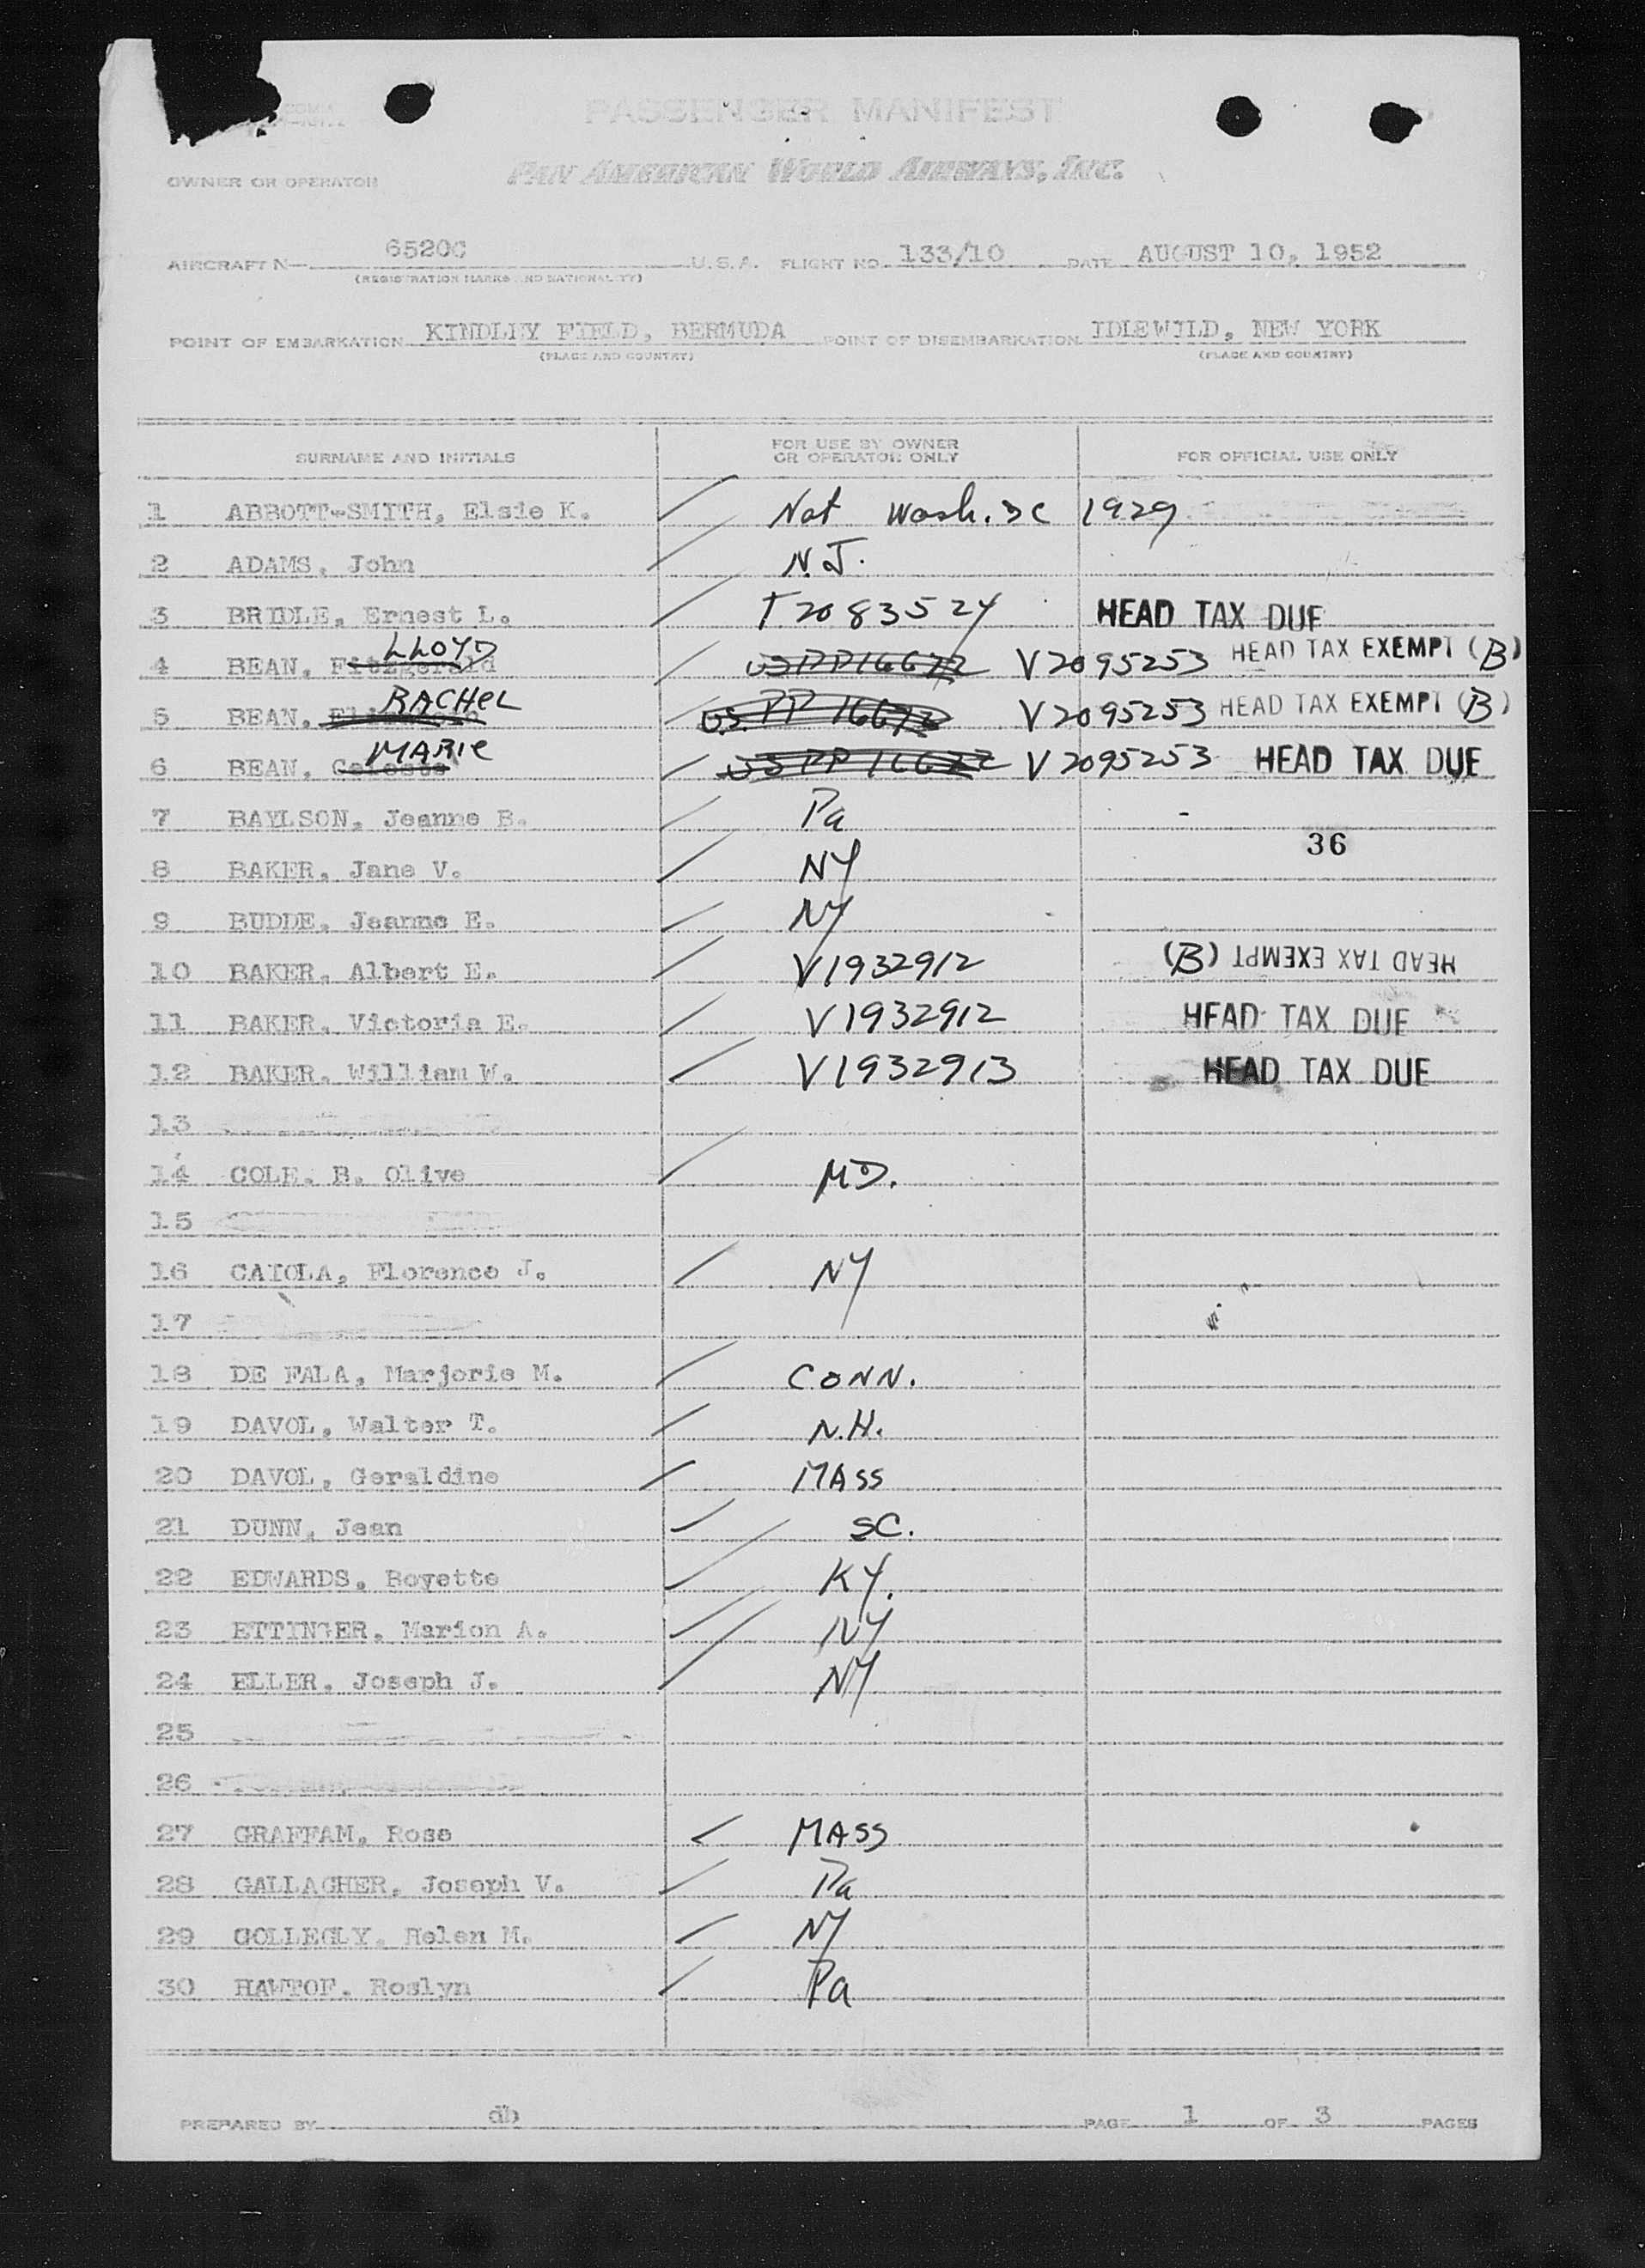 PASSENGER MANIFEST
OWNER OR OPERATOR PAN AMERICAN WORLD AIRWAYS, INC.
AIRCRAFT N- 6520C U.S.A. FLIGHT NO. 133/10 DATE AUGUST 10, 1952
(REGISTRATION MARKS AND NATIONALITY)
POINT OF EMBARKATION KINDLEY FIELD, BERMUDA POINT OF DISEMBARKATION IDLEWILD, NEW YORK
(PLACE AND COUNTRY) (PLACE AND COUNTRY)
SURNAME AND INITIALS FOR USE BY OWNER OR OPERATOR ONLY FOR OFFICIAL USE ONLY
1 ABBOTT-SMITH, Elsie K. Nat Wash. DC 1929
2 ADAMS, John N.J.
3 BRIDLE, Ernest L. T2083524 HEAD TAX DUE
4 BEAN, Fitzgerald LLOYD V2095253 HEAD TAX EXEMPT (B)
5 BEAN, RACHEL V2095253 HEAD TAX EXEMPT (B)
6 BEAN, Celeste MARIE V2095253 HEAD TAX DUE
7 BAYLSON, Jeanne B. Pa
36
8 BAKER, Jane V. NY
9 BUDDE, Jeanne E. NY
10 BAKER, Albert E. V1932912 HEAD TAX EXEMPT (B)
11 BAKER, Victoria E. V1932912 HEAD TAX DUE
12 BAKER, William W. V1932913 HEAD TAX DUE
13
14 COLE, B. Olive MD.
15
16 CAIOLA, Florence J. NY
17
18 DE FALA, Marjorie M. CONN.
19 DAVOL, Walter T. N.H.
20 DAVOL, Geraldine MASS
21 DUNN, Jean SC.
22 EDWARDS, Boyette KY.
23 ETTINGER, Marion A. NY
24 ELLER, Joseph J. NY
25
26
27 GRAFFAM, Rose MASS
28 GALLAGHER, Joseph V. Pa
29 GOLLEGLY, Helen M. NY
30 HAWTOF, Roslyn Pa
PREPARED BY db PAGE 1 OF 3 PAGES